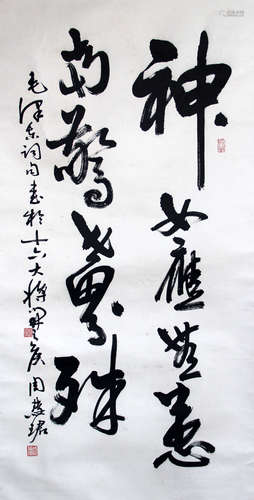 神女應無恙
當驚世界殊
毛澤東詞句書於十六大將開之後周慧珺